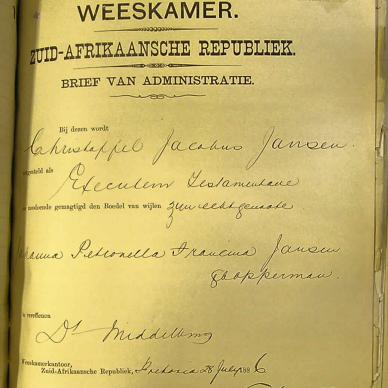 WEESKAMER.
ZUID-AFRIKAANSCHE REPUBLIEK.
BRIEF VAN ADMINISTRATIE.
Bij dezen wordt
Christoffel Jacobus Jansen
als
Executeur Testamentair
gemagtigd den Boedel van wijlen zyn echtgenoote
Petronella Francina Jansen
Middelburg
Weeskamerkantoor,
Zuid-Afrikaansche Republiek, Pretoria 28 July 1886